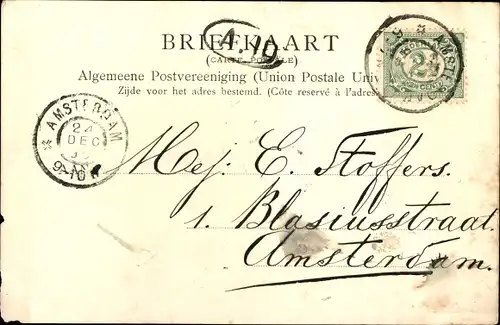 A.10
BRIEFKAART
(CARTE POSTALE)
Algemeene Postvereeniging (Union Postale Univ
Zijde voor het adres bestemd. (Côte reservé à l'adres
AMSTERDAM
24
DEC
AMSTE
2½
Mej: E. Stoffers.
1. Blasiusstraat.
Amsterdam.